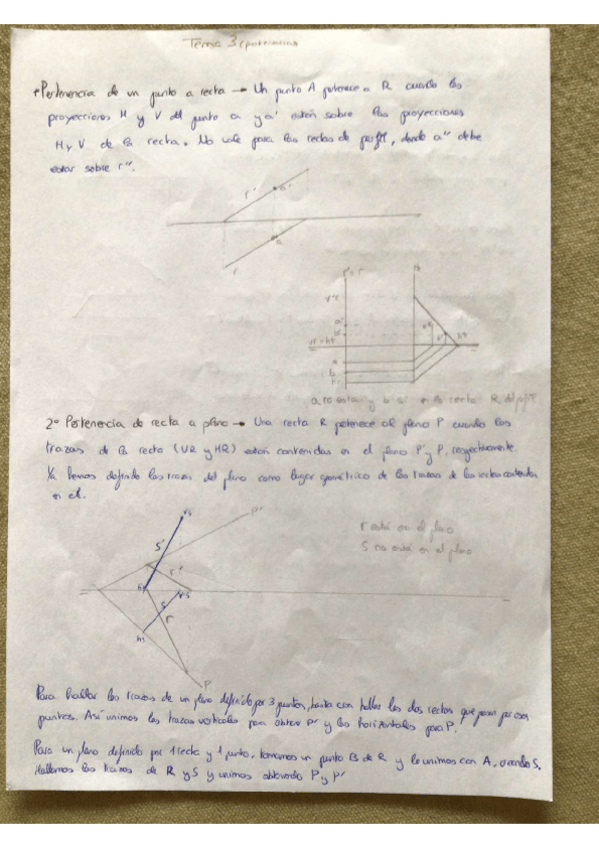 Tema 3 (pertenencias)
* Pertenencia de un punto a recta → Un punto A pertenece a R cuando las
proyecciones H y V del punto a y a' estén sobre las proyecciones
H y V de la recta. No vale para las rectas de perfil, donde a'' debe
estar sobre r''.
r'
a'
a
r
a'
b'
a
b
a no está y b sí en la recta R del perfil
2º Pertenencia de recta a plano → Una recta R pertenece al plano P cuando las
trazas de la recta (VR y HR) estén contenidas en el plano P' y P, respectivamente.
Ya hemos definido las trazas del plano como lugar geométrico de las trazas de las rectas contenidas
en el.
vs
P'
s'
r'
r está en el plano
S no está en el plano
s
r
hs
P
Para hallar las trazas de un plano definido por 3 puntos, basta con hallar las dos rectas que pasan por esos
puntos. Así unimos las trazas verticales para obtener P' y las horizontales para P.
Para un plano definido por 1 recta y 1 punto, tomamos un punto B de R y lo unimos con A, creando S.
Hallamos las trazas de R y S y unimos obteniendo P y P'